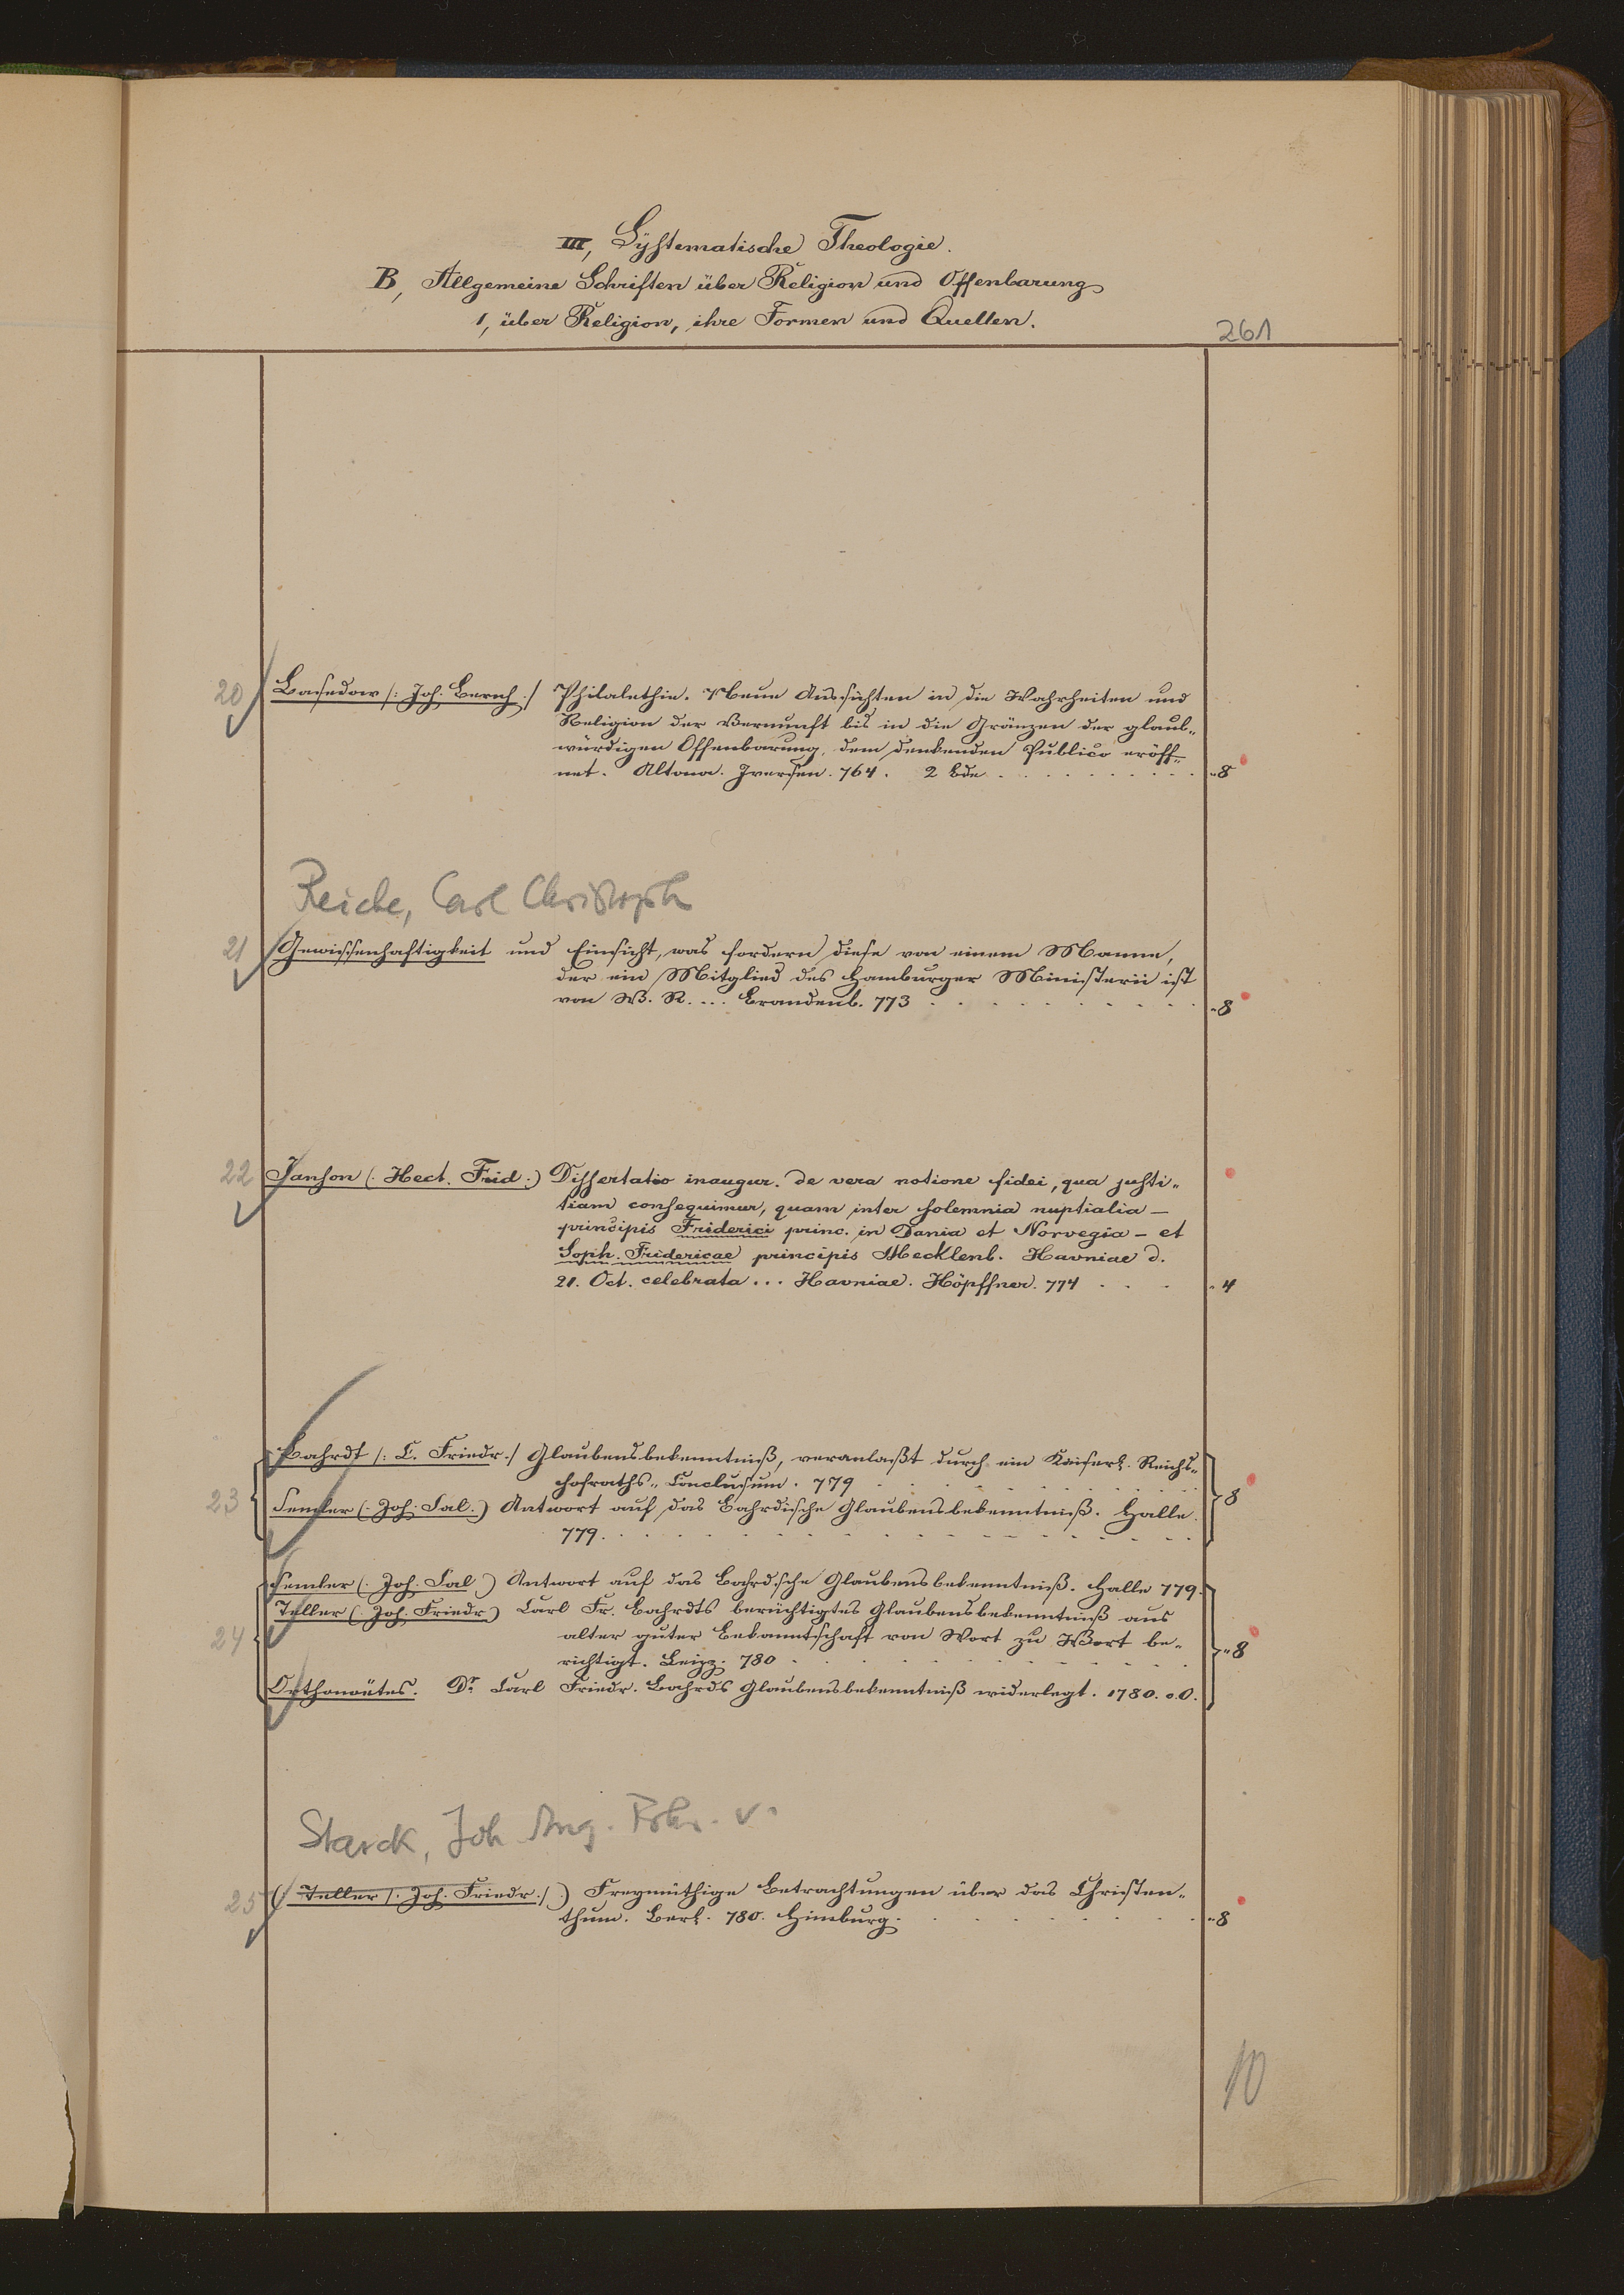 III, Systematische Theologie.
B, Allgemeine Schriften über Religion und Offenbarung
1, über Religion, ihre Formen und Quellen.
261
20 Basedow /: Joh. Bernh :/ Philalethie. Neue Aussichten in die Wahrheiten und
Religion der Vernunft bis in die Gränzen der glaub-
würdigen Offenbarung, dem denkenden Publico eröff-
net. Altona. Iversen. 764. 2 Bde . . . . . . . . . . „8
Reiche, Carl Christoph
21 Gewissenhaftigkeit und Einsicht, was fordern diese von einem Manne,
der ein Mitglied des Hamburger Ministerii ist
von W. R. ... Brandenb. 773 . . . . . . . „8
22 Janson (. Hect. Frid :) Dissertatio inaugur. de vera notione fidei, qua justi-
tiam consequimur, quam inter solemnia nuptialia —
principis Friderici princ. in Dania et Norvegia — et
Soph. Fridericae principis Mecklenb. Havniae d.
21. Oct. celebrata ... Havniae. Höpffner. 774 . . . „4
Bahrdt /: C. Friedr :/ Glaubensbekenntniß, veranlaßt durch ein Kaiserl. Reichs-
hofraths-Conclusum. 779 . . . . . . . .
23 Semler (. Joh. Sal.) Antwort auf das Bahrdische Glaubensbekenntniß. Halle. 8
779. . . . . . . . . . . . . . .
Semler (. Joh. Sal.) Antwort auf das Bahrdsche Glaubensbekenntniß. Halle 779.
Teller (. Joh. Friedr.) Carl Fr. Bahrdts berüchtigtes Glaubensbekenntniß aus
24 alter guter Bekanntschaft von Wort zu Wort be- „8
richtigt. Leipz. 780 . . . . . . . . .
Orthonoëtes. Dr. Carl Friedr. Bahrds Glaubensbekenntniß widerlegt. 1780. o.O.
Starck, Joh Aug. Frhr. v.
25 (Teller /. Joh. Friedr :/) Freymüthige Betrachtungen über das Christen-
thum. Berl. 780. Himburg. . . . . . . . „8
10